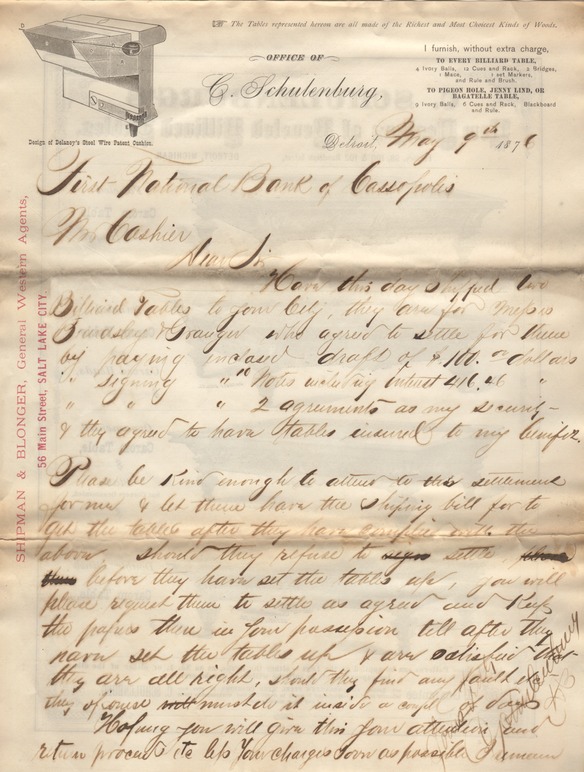 ☞ The Tables represented hereon are all made of the Richest and Most Choicest Kinds of Woods.
OFFICE OF
C. Schulenburg,
I furnish, without extra charge,
TO EVERY BILLIARD TABLE,
4 Ivory Balls, 12 Cues and Rack, 2 Bridges,
1 Mace, 1 set Markers,
and Rule and Brush.
TO PIGEON HOLE, JENNY LIND, OR
BAGATELLE TABLE,
9 Ivory Balls, 6 Cues and Rack, Blackboard
and Rule.
Design of Delaney's Steel Wire Patent Cushion.
Detroit, May 9th 1876
First National Bank of Cassopolis
Mr Cashier
Dear Sir
Have this day shipped two
Billiard Tables to your City, they are for Messrs
Beardsley & Granger who agreed to settle for them
by paying inclosed draft of $100.00 dollars
" signing " 10 Notes including Interest 416.26 "
" " " 2 agrements as my security
& they agreed to have tables insured to my benifit.
Please be Kind enough to attend to this settlement
for me & let them have the shiping bill for to
get the tables after they have complied with the
above, should they refuse to settle
before they have set the tables up, you will
please request them to settle as agreed and Keep
the papers then in your possesion till after they
have set the tables up & are satisfied
they are all right, should they find any fault
they of course must do it inside a couple days
Hoping you will give this your attention and
return proceeds etc less Your charges soon as possible I remain
SHIPMAN & BLONGER, General Western Agents,
56 Main Street, SALT LAKE CITY.